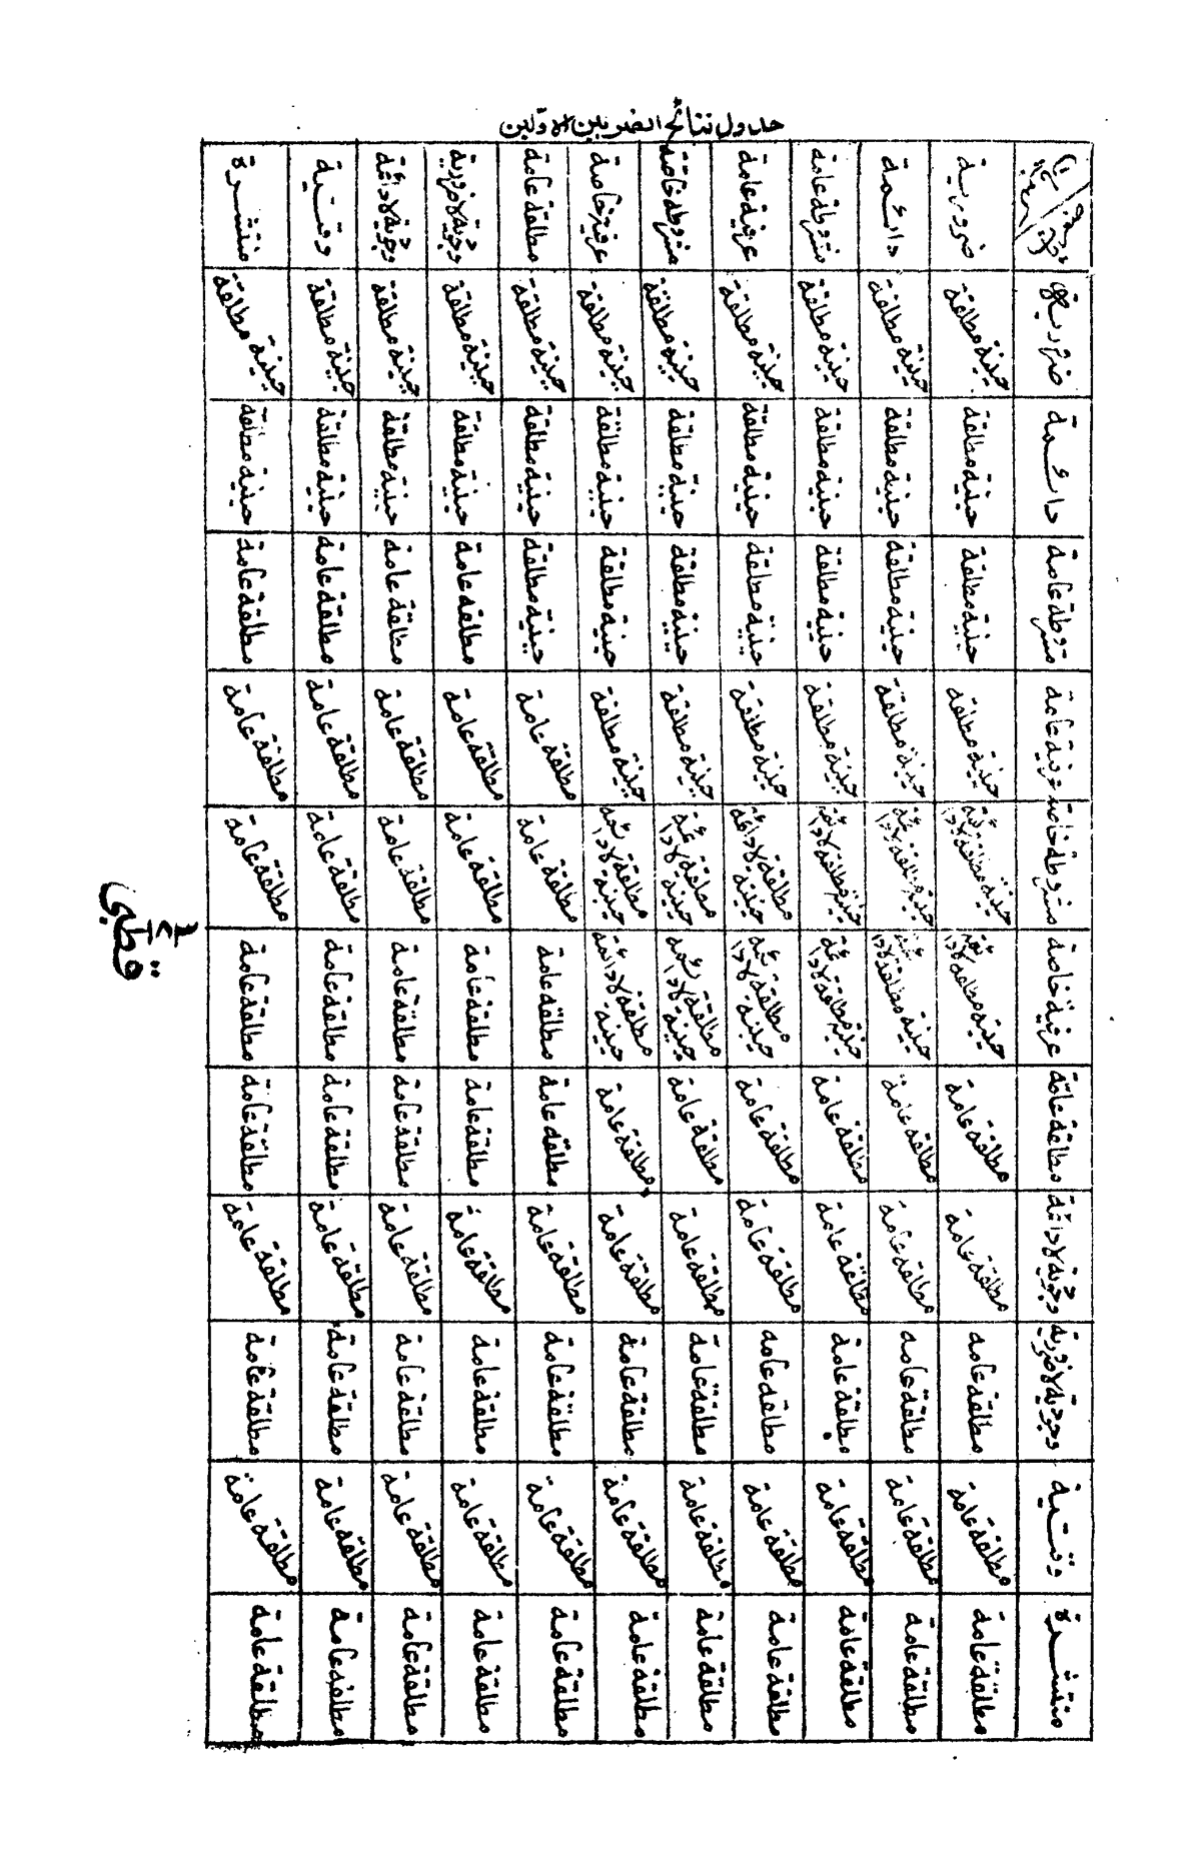 جدول نتائج الضربين الاولين
ضرورية دائمة مشروطة عامة عرفية عامة مشروطة خاصة عرفية خاصة مطلقة عامة وجودية لا ضرورية وجودية لا دائمة وقتية منتشرة
ضرورية حينية مطلقة حينية مطلقة حينية مطلقة حينية مطلقة حينية مطلقة حينية مطلقة حينية مطلقة حينية مطلقة حينية مطلقة حينية مطلقة حينية مطلقة
دائمة حينية مطلقة حينية مطلقة حينية مطلقة حينية مطلقة حينية مطلقة حينية مطلقة حينية مطلقة حينية مطلقة حينية مطلقة حينية مطلقة حينية مطلقة
مشروطة عامة حينية مطلقة حينية مطلقة حينية مطلقة حينية مطلقة حينية مطلقة حينية مطلقة حينية مطلقة مطلقة عامة مطلقة عامة مطلقة عامة مطلقة عامة
عرفية عامة حينية مطلقة حينية مطلقة حينية مطلقة حينية مطلقة حينية مطلقة حينية مطلقة مطلقة عامة مطلقة عامة مطلقة عامة مطلقة عامة مطلقة عامة
مشروطة خاصة حينية مطلقة لا دائمة حينية مطلقة لا دائمة حينية مطلقة لا دائمة حينية مطلقة لا دائمة حينية مطلقة لا دائمة حينية مطلقة لا دائمة مطلقة عامة مطلقة عامة مطلقة عامة مطلقة عامة مطلقة عامة
عرفية خاصة حينية مطلقة لا دائمة حينية مطلقة لا دائمة حينية مطلقة لا دائمة حينية مطلقة لا دائمة حينية مطلقة لا دائمة حينية مطلقة لا دائمة مطلقة عامة مطلقة عامة مطلقة عامة مطلقة عامة مطلقة عامة
مطلقة عامة مطلقة عامة مطلقة عامة مطلقة عامة مطلقة عامة مطلقة عامة مطلقة عامة مطلقة عامة مطلقة عامة مطلقة عامة مطلقة عامة مطلقة عامة
وجودية لا دائمة مطلقة عامة مطلقة عامة مطلقة عامة مطلقة عامة مطلقة عامة مطلقة عامة مطلقة عامة مطلقة عامة مطلقة عامة مطلقة عامة مطلقة عامة
وجودية لا ضرورية مطلقة عامة مطلقة عامة مطلقة عامة مطلقة عامة مطلقة عامة مطلقة عامة مطلقة عامة مطلقة عامة مطلقة عامة مطلقة عامة مطلقة عامة
وقتية مطلقة عامة مطلقة عامة مطلقة عامة مطلقة عامة مطلقة عامة مطلقة عامة مطلقة عامة مطلقة عامة مطلقة عامة مطلقة عامة مطلقة عامة
منتشرة مطلقة عامة مطلقة عامة مطلقة عامة مطلقة عامة مطلقة عامة مطلقة عامة مطلقة عامة مطلقة عامة مطلقة عامة مطلقة عامة مطلقة عامة
قطبى